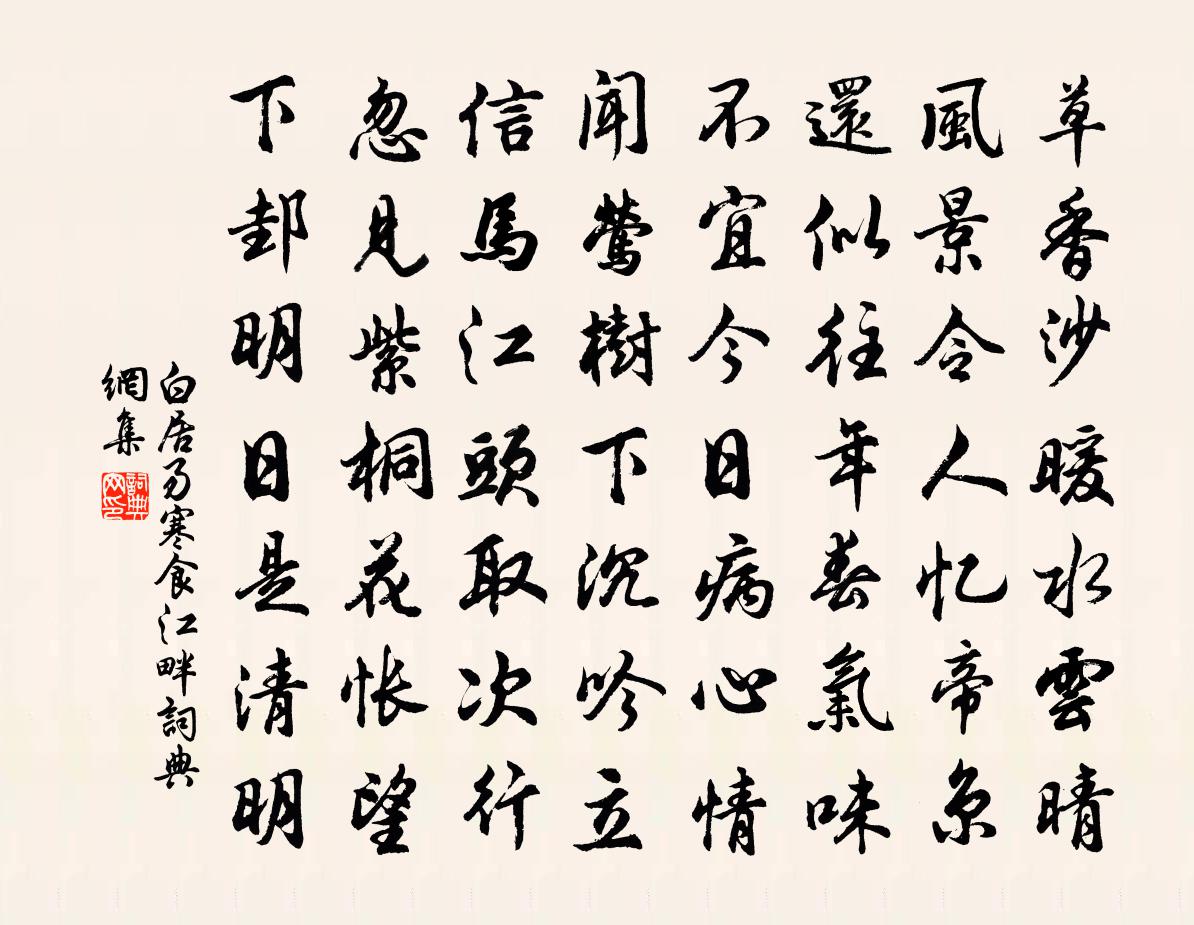 草香沙暖水雲晴
風景令人忆帝京
還似往年春氣味
不宜今日病心情
闻鶯樹下沉吟立
信馬江頭取次行
忽見紫桐花怅望
下邽明日是清明
白居易寒食江畔詞典
網集
詞典网印